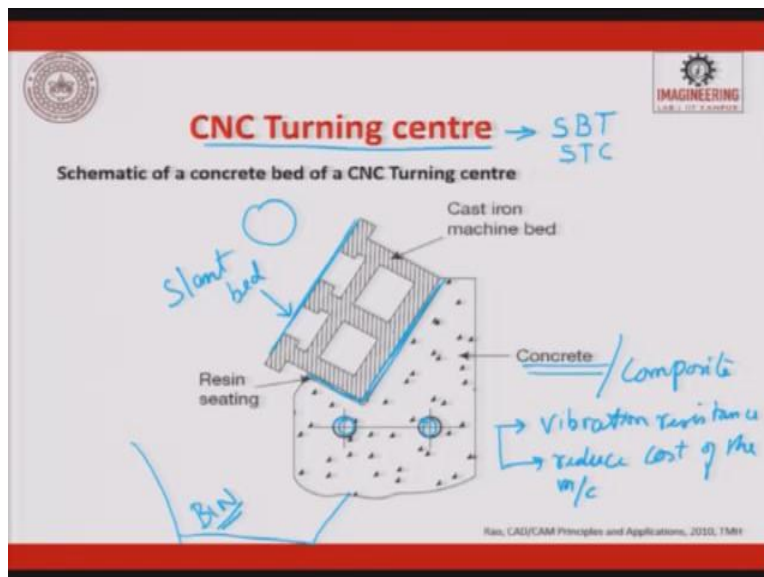 IMAGINEERING
CNC Turning centre → SBT
STC
Schematic of a concrete bed of a CNC Turning centre
Cast iron
machine bed
Slant
bed
Concrete / Composite
Resin
seating
→ vibration resistance
→ reduce cost of the
m/c
BIN
Rao, CAD/CAM Principles and Applications, 2010, TMH